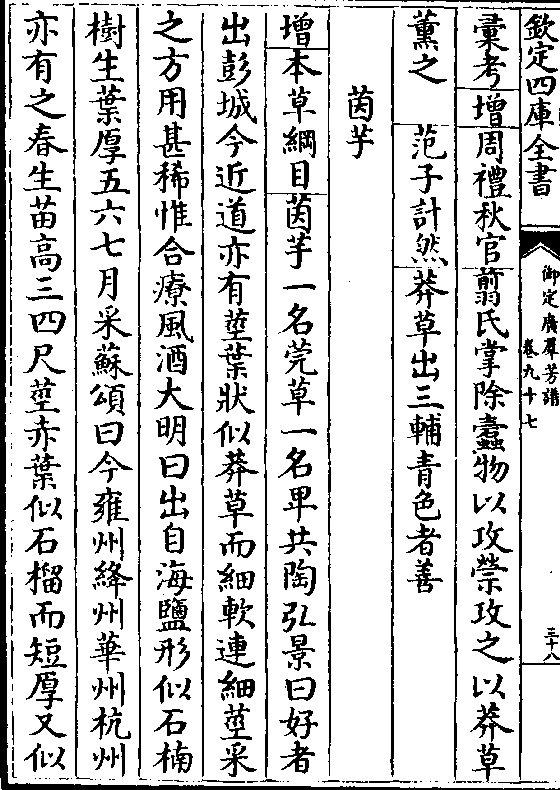 欽定四庫全書
御定廣羣芳譜
卷九十七
三十八
彚考增周禮秋官翦氏掌除蠹物以攻禜攻之以莽草
薫之 范子計然莽草出三輔青色者善
茵芋
增本草綱目茵芋一名莞草一名卑共陶弘景曰好者
出彭城今近道亦有莖葉狀似莽草而細軟連細莖采
之方用甚稀惟合療風酒大明曰出自海鹽形似石楠
樹生葉厚五六七月采蘇頌曰今雍州絳州華州杭州
亦有之春生苗高三四尺莖赤葉似石榴而短厚又似